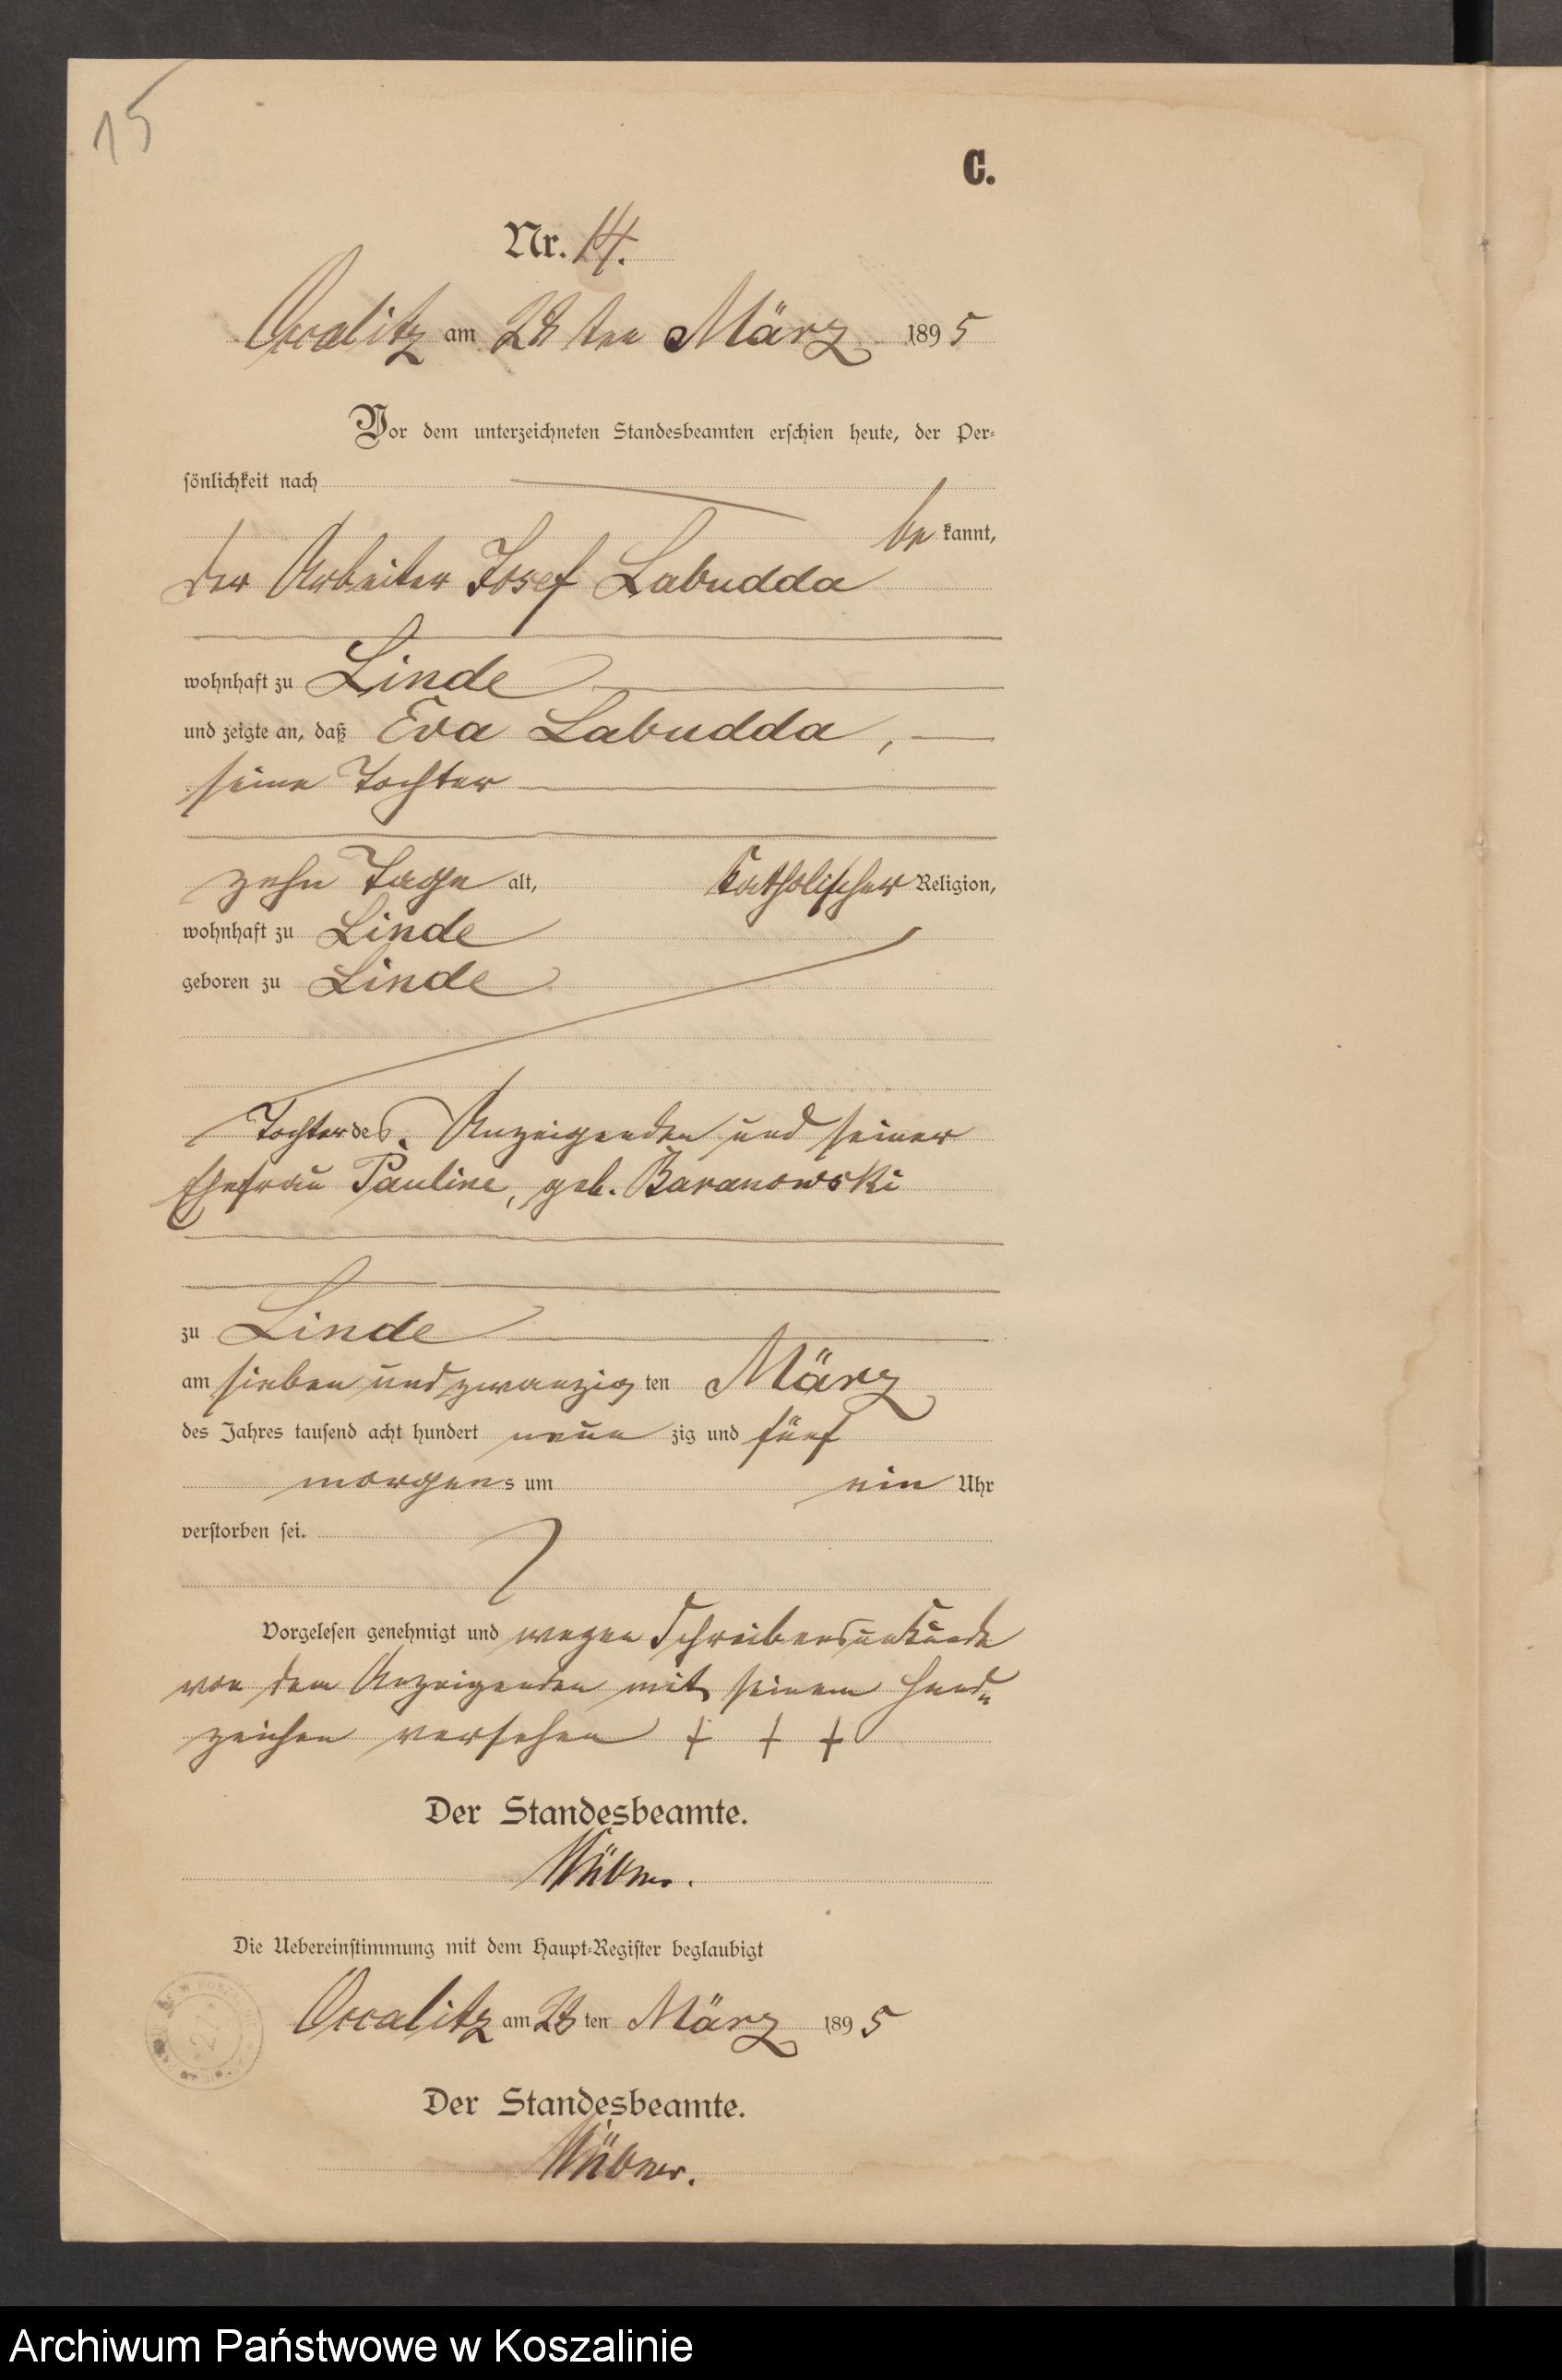 15
C.
Nr. 14.
Occalitz am 28 ten März 1895
Vor dem unterzeichneten Standesbeamten erschien heute, der Per-
sönlichkeit nach
be kannt,
der Arbeiter Josef Labudda
wohnhaft zu Linde
und zeigte an, daß Eva Labudda,
seine Tochter
zehn Tage alt, katholischer Religion,
wohnhaft zu Linde
geboren zu Linde
Tochter des Anzeigenden und seiner
Ehefrau Pauline, geb. Baranowski
zu Linde
am sieben und zwanzig ten März
des Jahres tausend acht hundert neun zig und fünf
morgens um ein Uhr
verstorben sei.
Vorgelesen genehmigt und wegen Schreibensunkunde
von dem Anzeigenden mit seinem Hand-
zeichen versehen + + +
Der Standesbeamte.
Die Uebereinstimmung mit dem Haupt-Register beglaubigt
Occalitz am 28 ten März 1895
Der Standesbeamte.
Archiwum Państwowe w Koszalinie